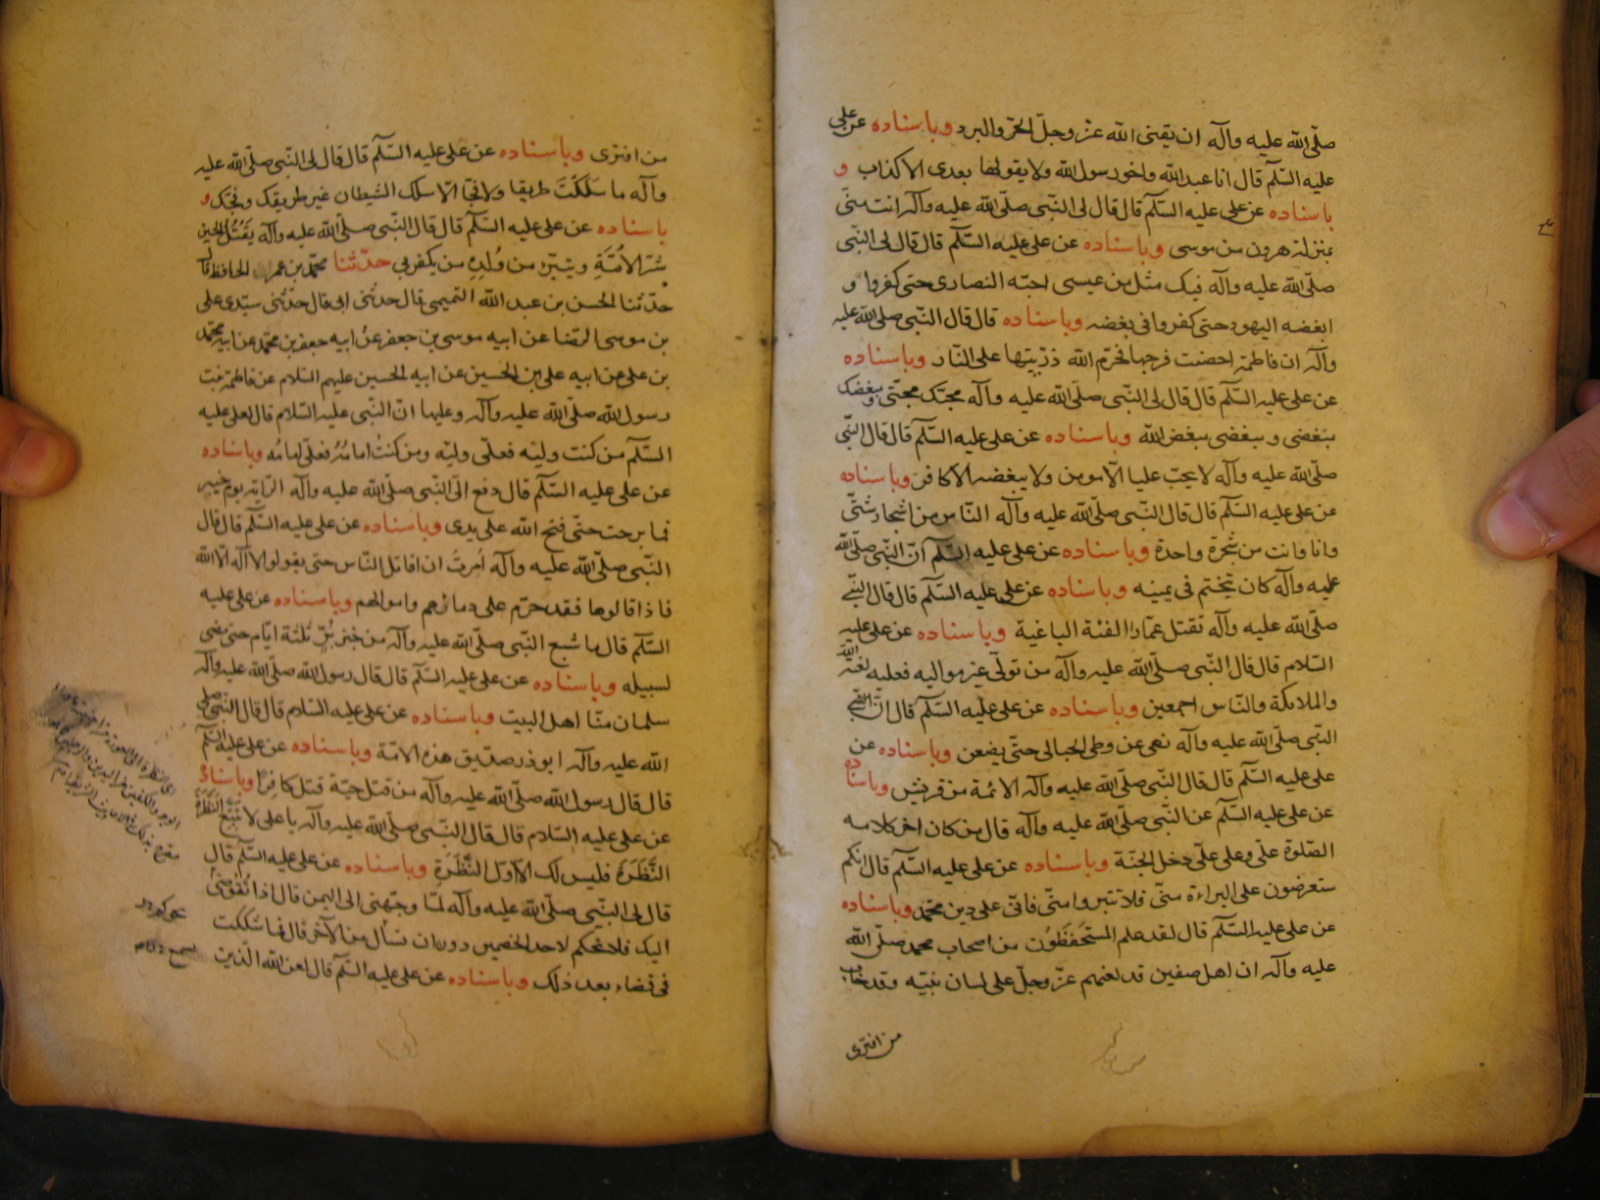 صلّى الله عليه وآله ان يقنى الله عزّ وجلّ الحرّ والبرد وباسناده عن على
عليه السّلم قال انا عبد الله واخو رسول الله ولا يقولها بعدى الا كذاب و
باسناده عن على عليه السّلم قال قال لى النّبى صلّى الله عليه وآله انت منّى
بمنزلة هرون من موسى وباسناده عن على عليه السّلم قال قال لى النّبى
صلّى الله عليه وآله فيك مثل من عيسى احبّه النصارى حتى كفروا و
ابغضه اليهود حتى كفروا فى بغضه وباسناده قال قال النّبى صلّى الله عليه
وآله ان فاطمة احصنت فرجها فحرّم الله ذرّيتها على النّار وباسناده
عن على عليه السّلم قال قال لى النّبى صلّى الله عليه وآله محبّك محبّى ومبغضك
مبغضى ومبغضى مبغض الله وباسناده عن على عليه السّلم قال قال النّبى
صلّى الله عليه وآله لا يحبّ عليا الّا مومن ولا يبغضه الا كافر وباسناده
عن على عليه السّلم قال قال النّبى صلّى الله عليه وآله النّاس من اشجار شتّى
وانا وانت من شجرة واحدة وباسناده عن على عليه السّلم انّ النّبى صلّى الله
عليه وآله كان يتختم فى يمينه وباسناده عن على عليه السّلم قال قال النّبى
صلّى الله عليه وآله تقتل عمّارا الفئة الباغية وباسناده عن على عليه
السّلام قال قال النّبى صلّى الله عليه وآله من تولّى غير مواليه فعليه لعنة الله
والملائكة والنّاس اجمعين وباسناده عن على عليه السّلم قال انّ
النّبى صلّى الله عليه وآله نهى عن وطى الحبالى حتّى يضعن وباسناده عن
على عليه السّلم قال قال النّبى صلّى الله عليه وآله الائمة من قريش وباسناده
عن على عليه السّلم عن النّبى صلّى الله عليه وآله قال من كان اخر كلامه
الصّلوة علىّ وعلى علىّ دخل الجنّة وباسناده عن على عليه السّلم قال انكم
ستعرضون على البراءة منّى فلا تتبروا منّى فانّى على دين محمّد وباسناده
عن على عليه السّلم قال لقد علم المستحفظون من اصحاب محمد صلّى الله
عليه وآله ان اهل صفين قد لعنهم عزّ وجلّ على لسان نبيّه وقد خاب
من افترى
من افترى وباسناده عن على عليه السّلم قال قال لى النّبى صلّى الله عليه
وآله ما سلكت طريقا ولا فجّا الّا سلك الشيطان غير طريقك وفجّك و
باسناده عن على عليه السّلم قال قال النّبى صلّى الله عليه وآله يقتل الحسين
شرّ الامّة ويتبرّء من ولده من يكفر بى حدّثنا محمّد بن عمر الحافظ قال
حدّثنا الحسن بن عبد الله التميمى قال حدثنى ابى قال حدّثنى سيّدى على
بن موسى الرضا عن ابيه موسى بن جعفر عن ابيه جعفر بن محمّد عن ابيه محمّد
بن على عن ابيه على بن الحسين عن ابيه الحسين عليهم السّلام عن فاطمة بنت
رسول الله صلّى الله عليه وآله وعليها انّ النّبى عليه السّلام قال لعلى عليه
السّلم من كنت وليّه فعلىّ وليّه ومن كنت امامه فعلىّ امامه وباسناده
عن على عليه السّلم قال دفع الىّ النّبى صلّى الله عليه وآله الرّاية يوم خيبر
فما برحت حتّى فتح الله على يدى وباسناده عن على عليه السّلم قال قال
النّبى صلّى الله عليه وآله امرت ان اقاتل النّاس حتى يقولوا لا اله الّا الله
فاذا قالوها فقد حرّم على دمائهم واموالهم وباسناده عن على عليه
السّلم قال ما شبع النّبى صلّى الله عليه وآله من خبز برّ ثلثة ايّام حتى مضى
لسبيله وباسناده عن على عليه السّلم قال قال رسول الله صلّى الله عليه وآله
سلمان منّا اهل البيت وباسناده عن على عليه السّلام قال قال النّبى صلّى
الله عليه وآله ابو ذر صدّيق هذه الامّة وباسناده عن على عليه السّلم
قال قال رسول الله صلّى الله عليه وآله من قتل حيّة قتل كافرا وباسناده
عن على عليه السّلام قال قال النّبى صلّى الله عليه وآله يا على لا تتبع النّظرة
النّظرة فليس لك الّا اوّل النّظرة وباسناده عن على عليه السّلم قال
قال لى النّبى صلّى الله عليه وآله لمّا وجّهنى الى اليمن قال اذا تقوضى
اليك فلا تحكم لاحد الخصمين دون ان تسأل من الآخر قال فما شككت
فى قضاء بعد ذلك وباسناده عن على عليه السّلم قال لعن الله الّذين